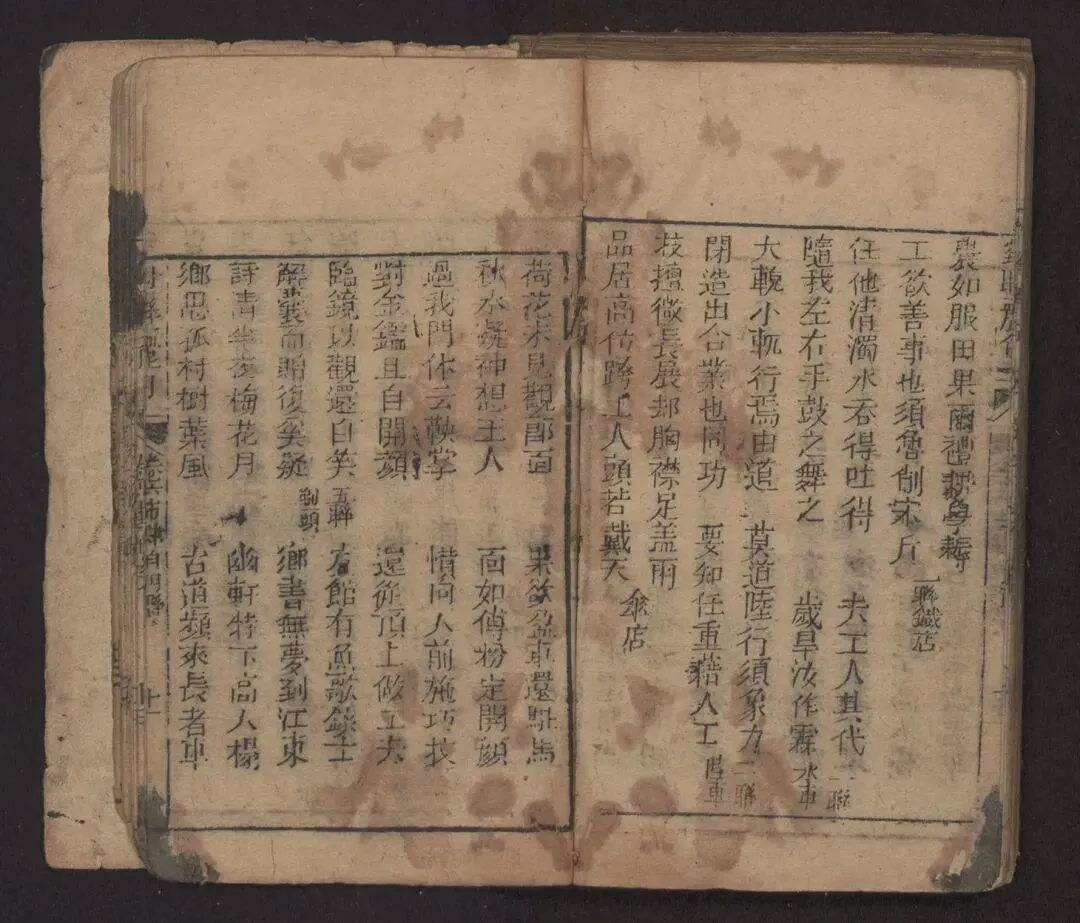 農如服田果爾禮耕學耨
工欲善事也須魯削宋斤 一聯鐵店
任他清濁水吞得吐得 夫工人其代
隨我左右手鼓之舞之 歲旱汝作霖 水車 二聯
大輗小軏行焉由道 莫道陸行須象力 二聯
閉造出合業也同功 要知任重藉人工 車
技擅微長展却胸襟足盖雨
品居高位跨上人頭若戴天 傘店
荷花未見觀郎面 果欲盈車還駐馬
秋水凝神想玉人 面如傅粉定開顏
過我門休云鞅掌 惜向人前施巧技
對金鑑且自開顏 還從頂上做工夫
臨鏡以觀還自笑 五聯 左館有魚歌錄士
解囊而贈復奚疑 剃頭 鄉書無夢到江東
詩清半夜梅花月 幽軒特下高人榻
鄉思孤村樹葉風 古道頻來長者車